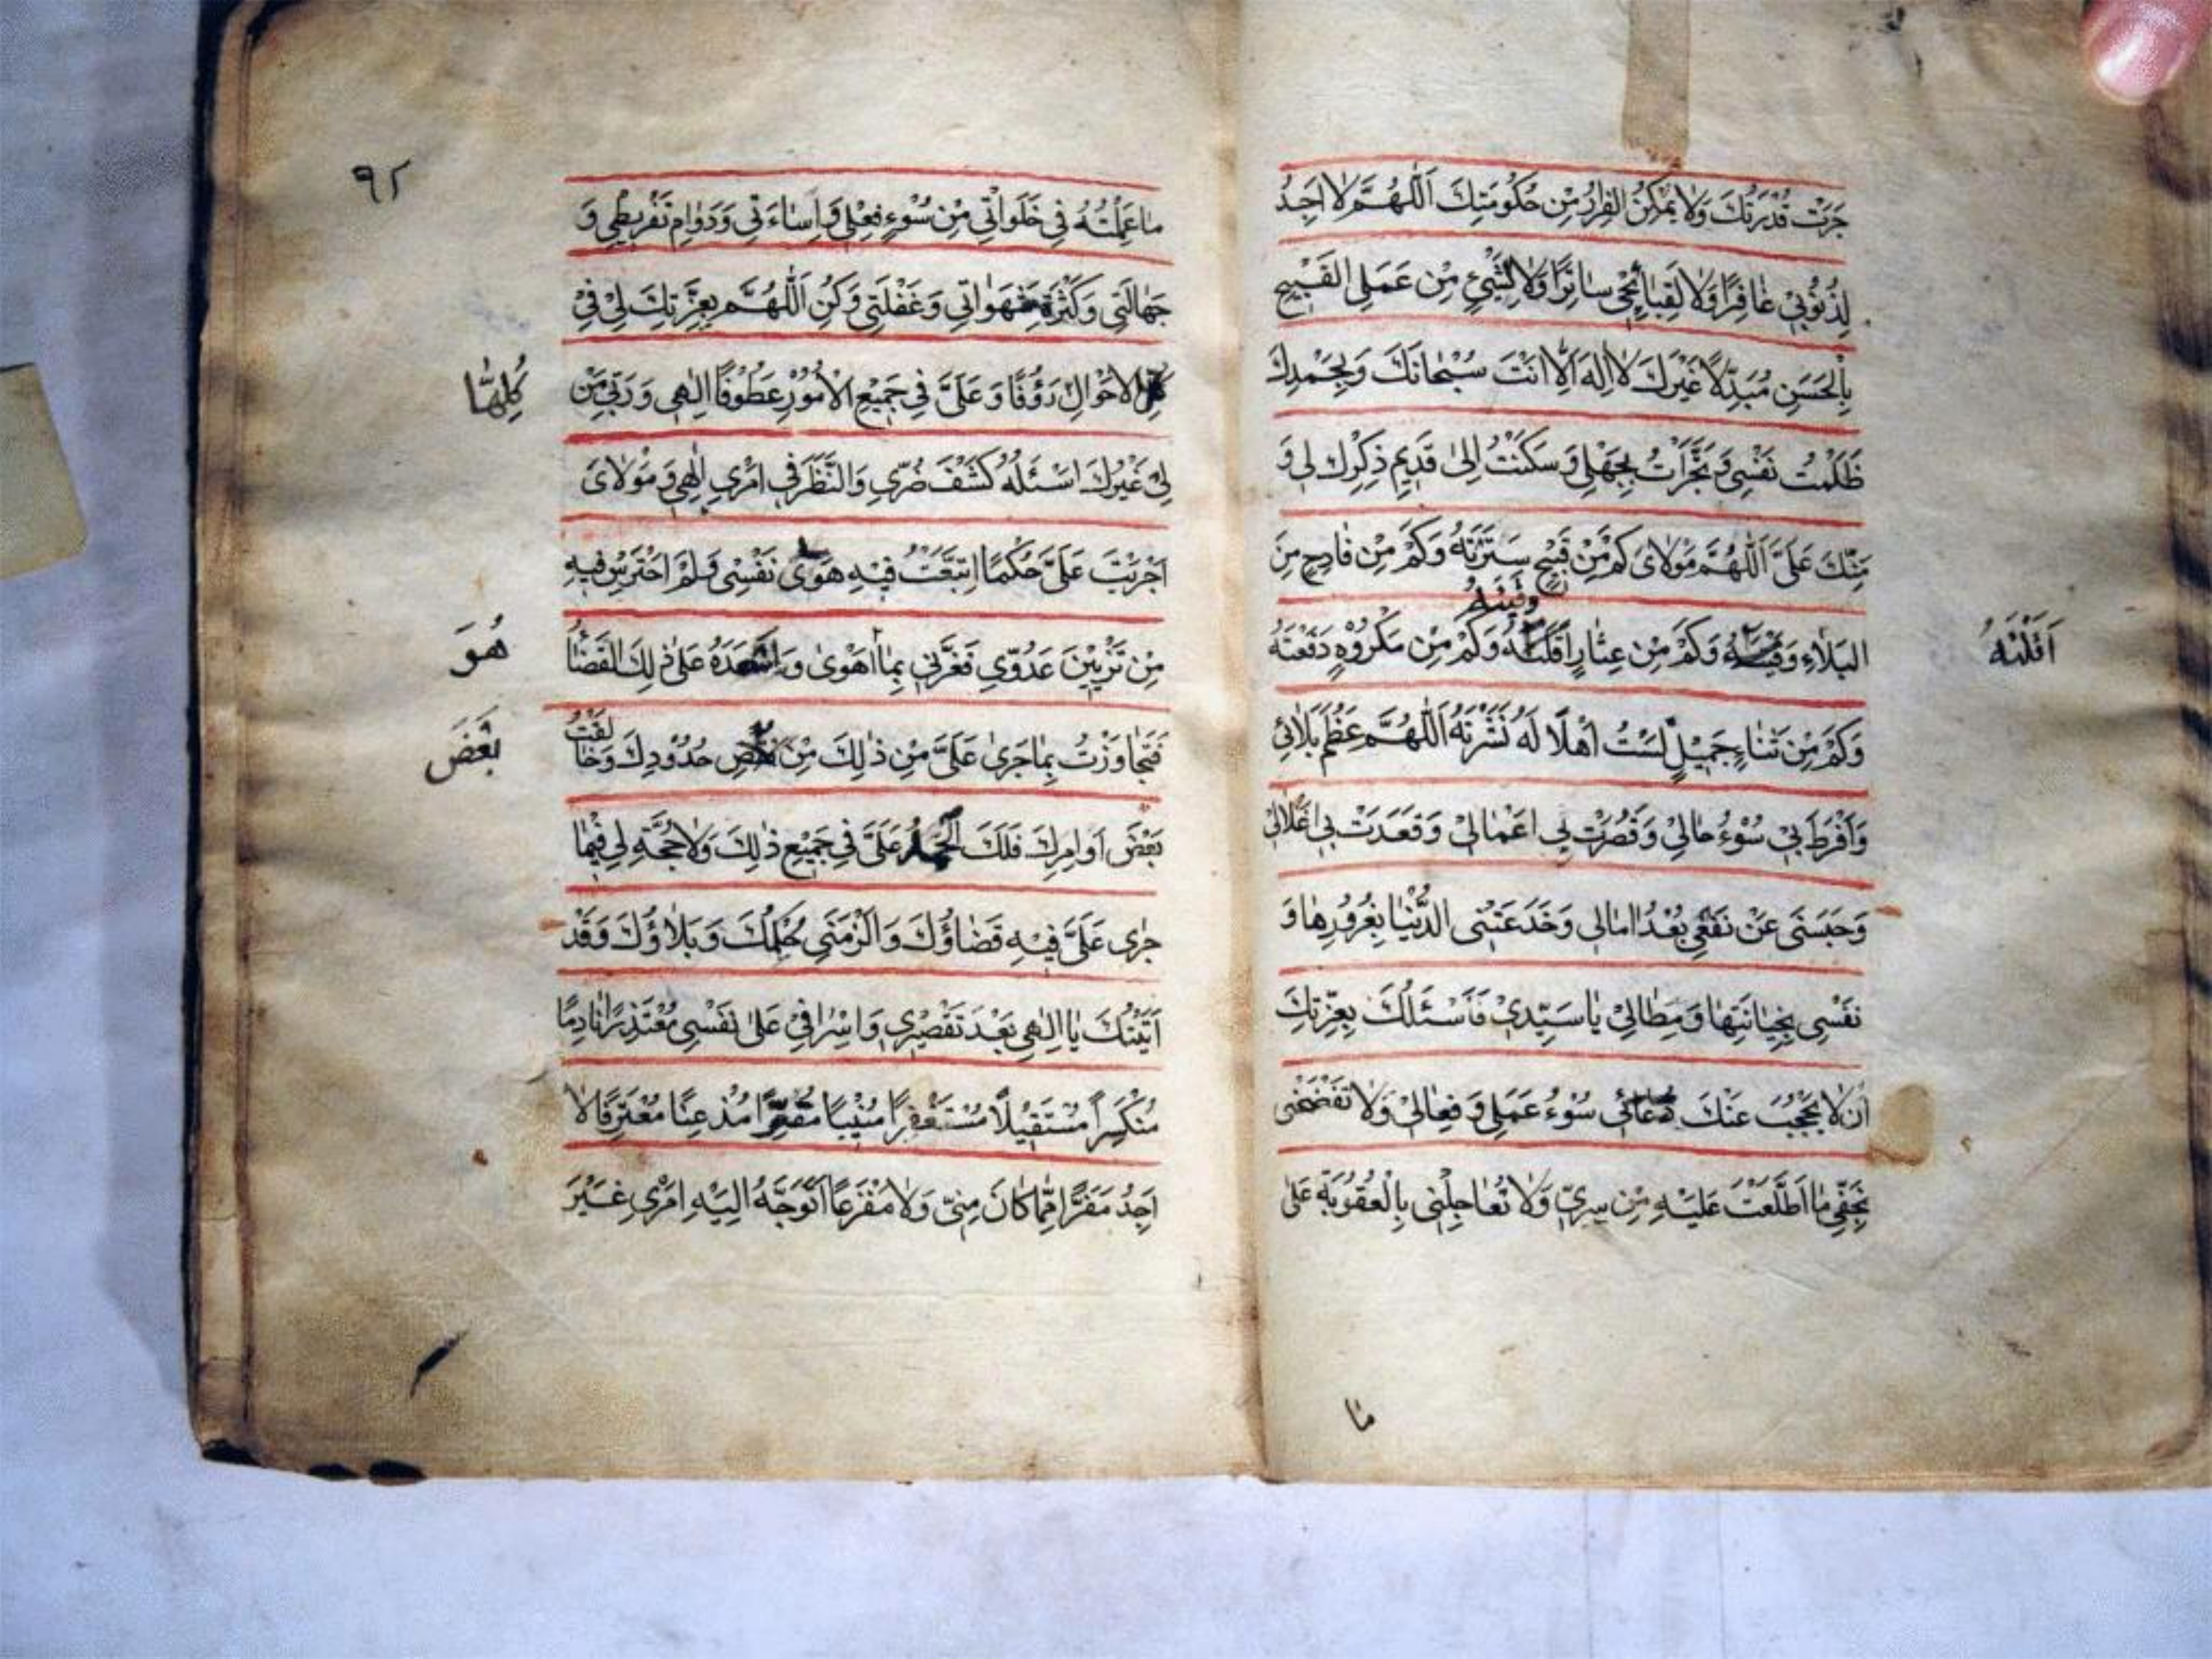 جَرَتْ قُدْرَتُكَ وَلَا يُمْكِنُ الْفِرَارُ مِنْ حُكُومَتِكَ اَللّٰهُمَّ لَا اَجِدُ
لِذُنُوْبِيْ غَافِرًا وَلَا لِقَبَائِحِيْ سَاتِرًا وَلَا لِشَيْئٍ مِنْ عَمَلِى الْقَبِيْحِ
بِالْحَسَنِ مُبَدِّلًا غَيْرَكَ لَا اِلٰهَ اِلَّا اَنْتَ سُبْحَانَكَ وَبِحَمْدِكَ
ظَلَمْتُ نَفْسِى وَتَجَرَّاْتُ بِجَهْلِى وَسَكَنْتُ اِلىٰ قَدِيْمِ ذِكْرِكَ لِى وَ
مَنِّكَ عَلَىَّ اَللّٰهُمَّ مَوْلَاىَ كَمْ مِنْ قَبِيْحٍ سَتَرْتَهُ وَكَمْ مِنْ فَادِحٍ مِنَ
وَقَيْتَهُ
الْبَلَاءِ وَكَمْ مِنْ عِثَارٍ وَكَمْ مِنْ مَكْرُوْهٍ دَفَعْتَهُ
اَقَلْتَهُ
وَكَمْ مِنْ ثَنَاءٍ جَمِيْلٍ لَسْتُ اَهْلًا لَهُ نَشَرْتَهُ اَللّٰهُمَّ عَظُمَ بَلَائِي
وَاَفْرَطَ بِيْ سُوْءُ حَالِيْ وَقَصُرَتْ بِى اَعْمَالِىْ وَقَعَدَتْ بِى اَغْلَالِىْ
وَحَبَسَنَى عَنْ نَفْعِى بُعْدُ اٰمَالِى وَخَدَعَتْنِى الدُّنْيَا بِغُرُوْرِهَا وَ
نَفْسِى بِخِيَانَتِهَا وَمِطَالِىْ يَا سَيِّدِىْ فَاَسْئَلُكَ بِعِزَّتِكَ
اَنْ لَا يَحْجُبَ عَنْكَ دُعَائِى سُوْءُ عَمَلِى وَفِعَالِىْ وَلَا تَفْضَحْنِى
بِخَفِّى مَا اَطَّلَعْتَ عَلَيْهِ مِنْ سِرِّىْ وَلَا تُعَاجِلْنِى بِالْعُقُوْبَةِ عَلىٰ
مَا
٩٢
مَا عَمِلْتُهُ فِى خَلَوَاتِي مِنْ سُوْءِ فِعْلِى وَاِسَاءَتِى وَدَوَامِ تَفْرِيْطِى وَ
جَهَالَتِى وَكَثْرَةِ شَهَوَاتِى وَغَفْلَتِى وَكُنِ اَللّٰهُمَّ بِعِزَّتِكَ لِىْ فِىْ
الْاَحْوَالِ رَؤُفًا وَعَلَىَّ فِى جَمِيْعِ الْاُمُوْرِ عَطُوْفًا اِلٰهِى وَرَبِّى مَنْ
كُلِّهَا
لِىْ غَيْرُكَ اَسْئَلُهُ كَشْفَ ضُرِّى وَالنَّظَرَ فِى اَمْرِى اِلٰهِى وَمَوْلَاىَ
اَجْرَيْتَ عَلَىَّ حُكْمًا اِتَّبَعْتُ فِيْهِ هَوٰى نَفْسِى وَلَمْ اَحْتَرِسْ فِيْهِ
مِنْ تَزْيِيْنِ عَدُوِّى فَغَرَّنِى بِمَا اَهْوىٰ وَاَسْعَدَهُ عَلىٰ ذٰلِكَ الْقَضَاءُ
هُوَ
فَتَجَاوَزْتُ بِمَا جَرىٰ عَلَىَّ مِنْ ذٰلِكَ مِنْ حُدُوْدِكَ وَخَالَفْتُ
بَعْضَ
بَعْضَ اَوَامِرِكَ فَلَكَ الْحَمْدُ عَلَىَّ فِى جَمِيْعِ ذٰلِكَ وَلَا حُجَّةَ لِى فِيْمَا
جَرٰى عَلَىَّ فِيْهِ قَضَاؤُكَ وَاَلْزَمَنِى حُكْمُكَ وَبَلَاؤُكَ وَقَدْ
اَتَيْتُكَ يَا اِلٰهِى بَعْدَ تَقْصِيْرِى وَاِسْرَافِى عَلىٰ نَفْسِى مُعْتَذِرًا نَادِمًا
مُنْكَسِرًا مُسْتَقِيْلًا مُسْتَغْفِرًا مُنِيْبًا مُقِرًّا مُذْعِنًا مُعْتَرِفًا لَا
اَجِدُ مَفَرًّا مِمَّا كَانَ مِنِّى وَلَا مَفْزَعًا اَتَوَجَّهُ اِلَيْهِ اَمْرِى غَيْرَ